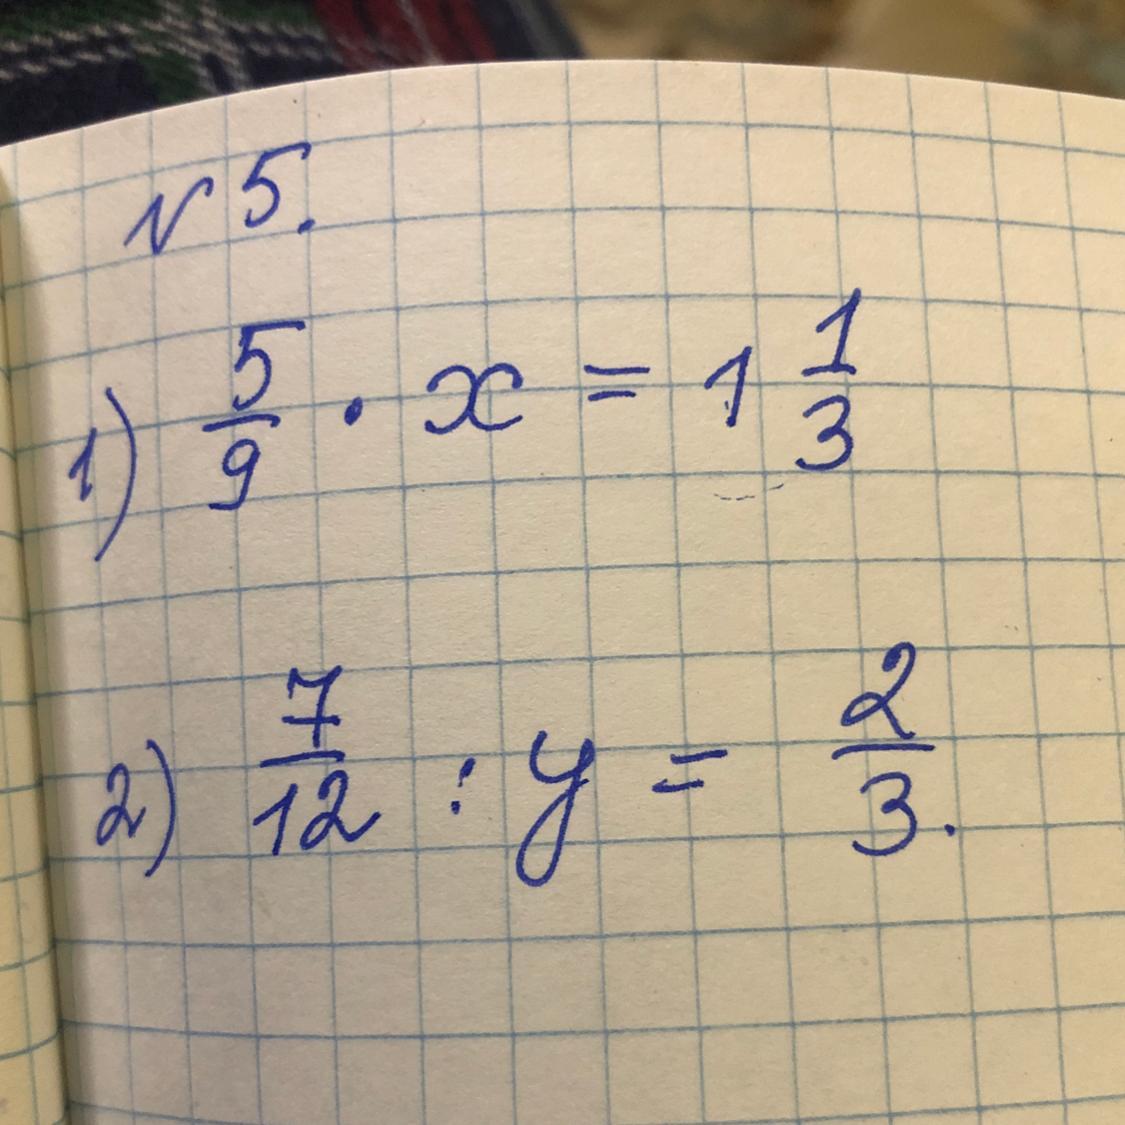 N 5.
1) 5/9 · x = 1 1/3
2) 7/12 : y = 2/3.